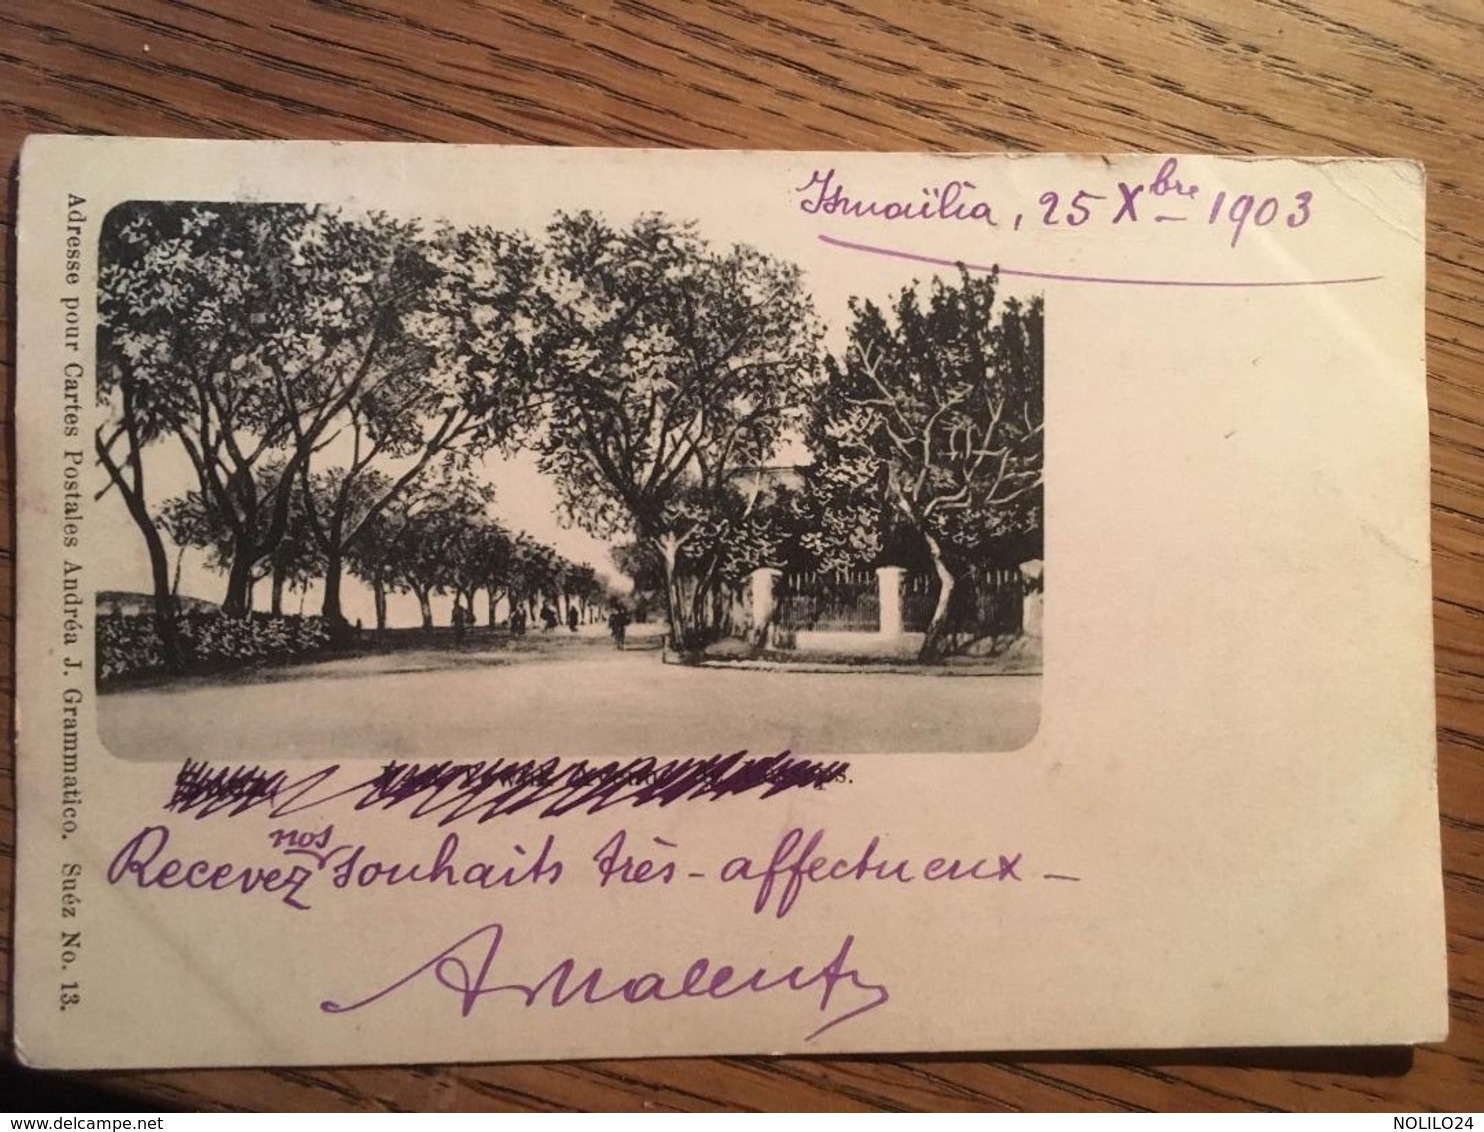 Ismaïlia, 25 Xbre 1903
Adresse pour Cartes Postales Andréa J. Grammatico. Suéz No. 13.
Recevez nos souhaits très-affectueux-
delcampe.net
NOLILO24